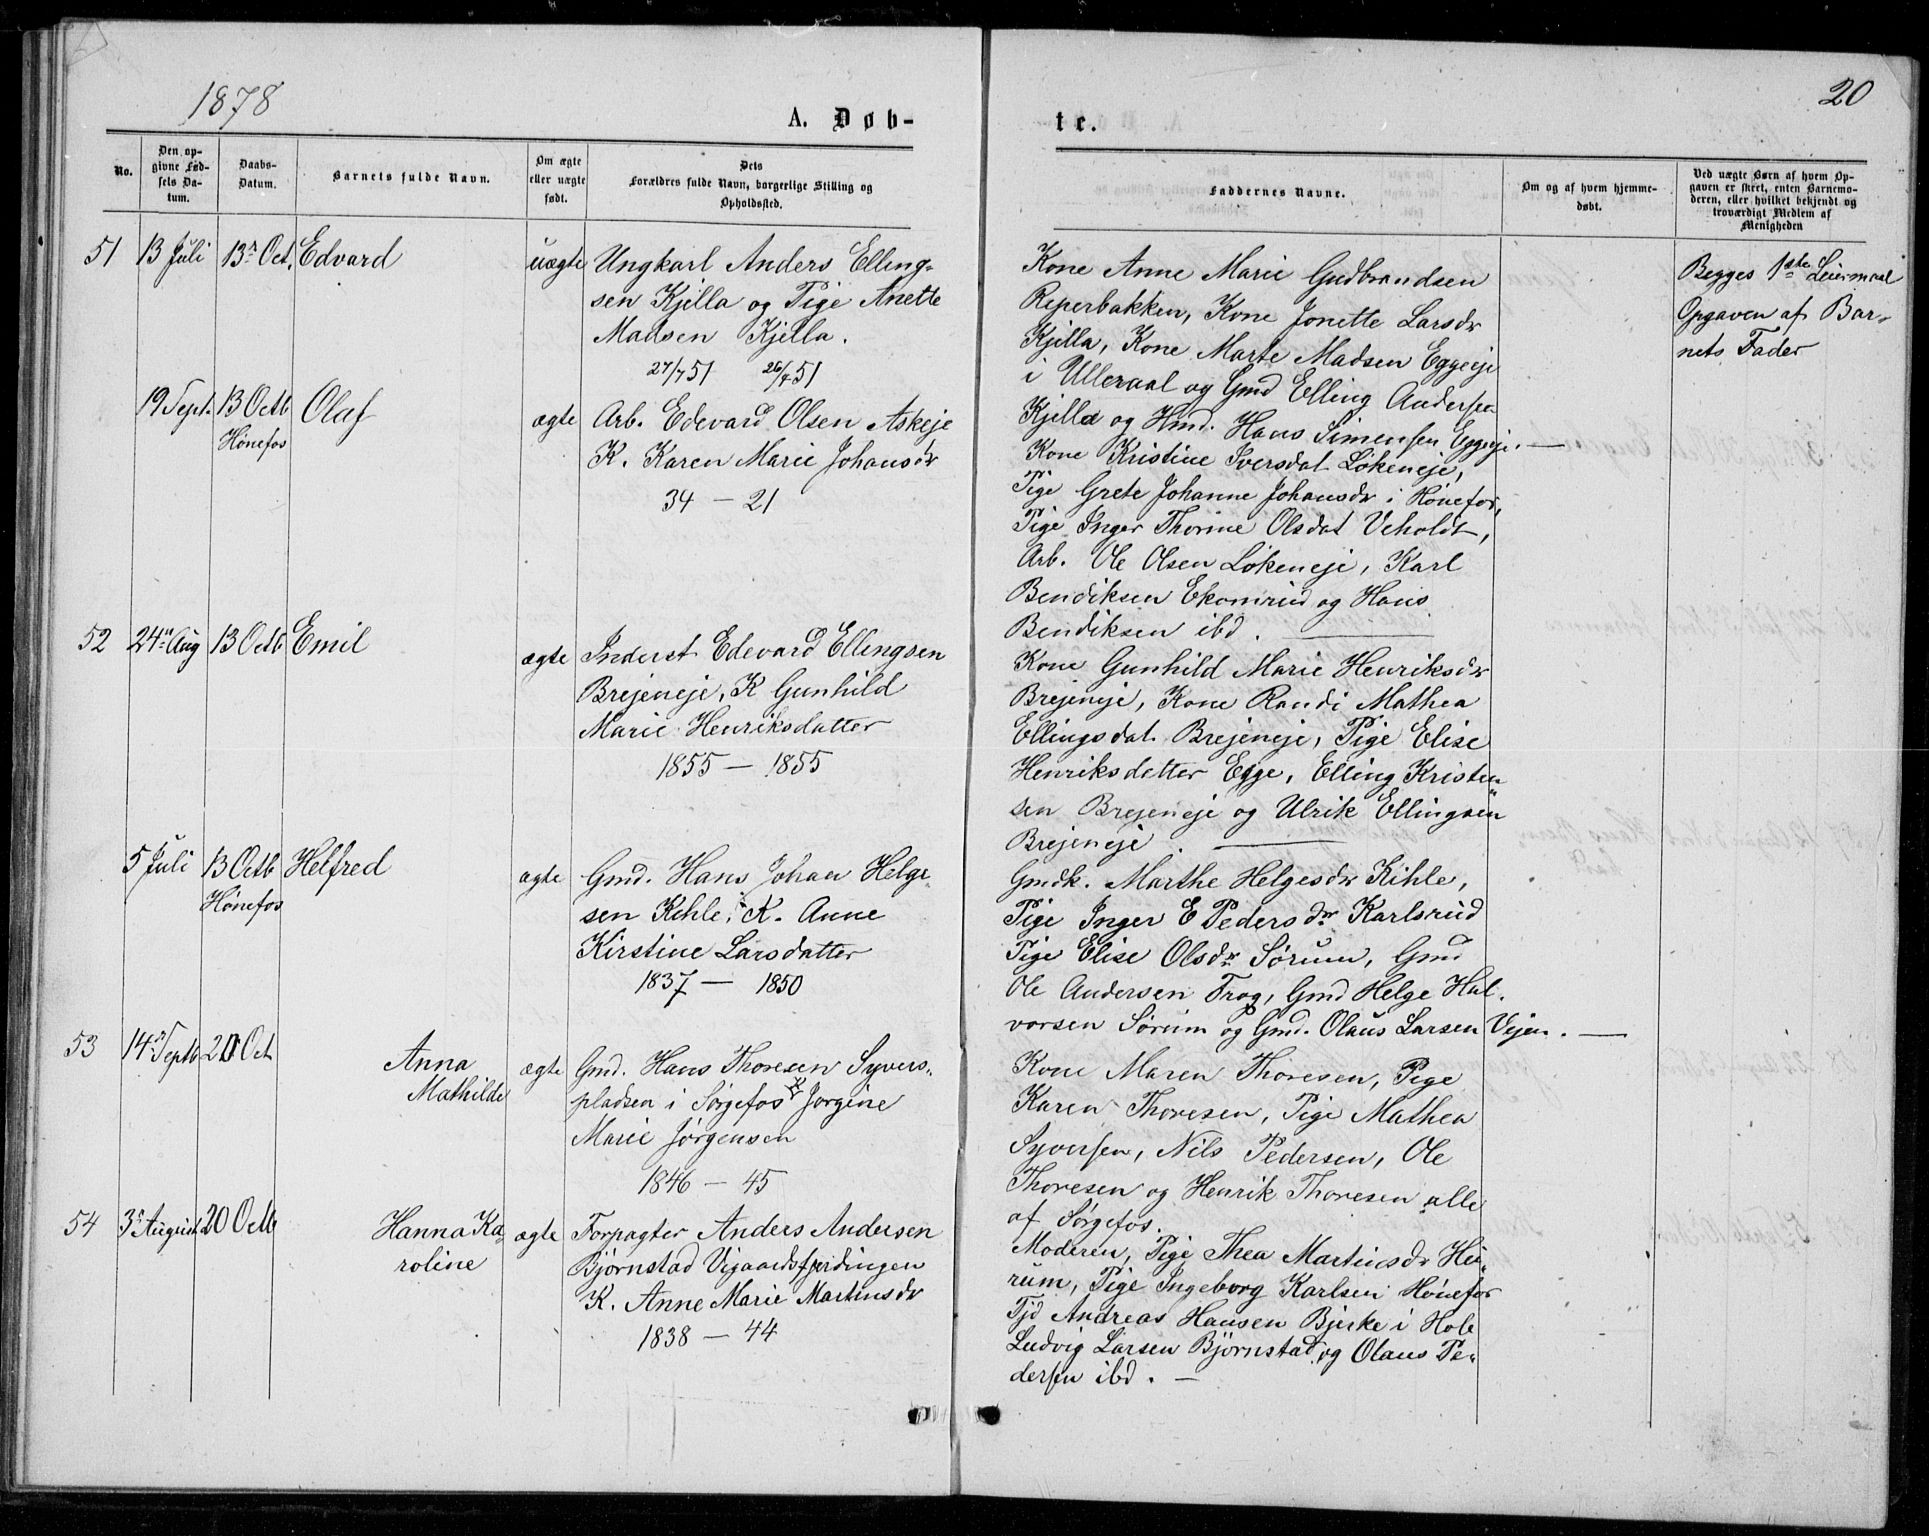 1878
A. Døb-
No.
Den op-
givne Fød-
sels Da-
tum.
Daabs-
Datum.
Barnets fulde Navn.
Om ægte
eller uægte
født.
Dets
Forældres fulde Navn, borgerlige Stilling og
Opholdssted.
51 13 Juli 13 Oct. Edvard uægte Ungkarl Anders Elling-
sen Kjella og Pige Anette
Madsen Kjella.
27/7 51 26/4 51
19 Sept. 13 Octb Olaf ægte Arb. Edevard Olsen Askeje
Hønefos K. Karen Marie Johansdr
34 — 21
52 24 Aug 13 Octb Emil ægte Inderst Edevard Ellingsen
Brejeneje, K Gunhild
Marie Henriksdatter
1855 — 1855
5 Juli 13 Octb Helfred ægte Gmd. Hans Johan Helge
Hønefos sen Kihle, K. Anne
Kirstine Larsdatter
1837 — 1850
53 14 Septb 20 Oct Anna ægte Gmd. Hans Thoresen Syvers-
Mathilde pladsen i Sørgefos K Jørgine
Marie Jørgensen
1846 — 45
54 3 August 20 Octb Hanna Ka- ægte Forpagter Anders Andersen
roline Bjørnstad Vigaardsfjerdingen
K. Anne Marie Martinsdr
1838 — 44
20
te.
Faddernes Navne.
Om og af hvem hjemme-
døbt.
Ved uægte Børn af hvem Op-
gaven er skeet, enten Barnemo-
deren, eller hvilket bekjendt og
troværdigt Medlem af
Menigheden
Kone Anne Marie Gudbrandsen
Reperbakken, Kone Jonette Larsdr
Kjilla, Kone Marte Madsen Eggeeje
i Ulleraal og Gmd Elling Andersen
Kjilla og Hmd. Hans Simensen Eggeje. —
Begges 1ste Leiermaal
Opgaven af Bar-
nets Fader
Kone Kristine Iversdat Lökeneje,
Pige Grete Johanne Johansdr i Hönefos,
Pige Inger Thorine Olsdat Veholdt,
Arb. Ole Olsen Lökeneje, Karl
Bendiksen Ekornrud og Hans
Bendiksen ibd. —
Kone Gunhild Marie Henriksdr
Brejeneje, Kone Randi Mathea
Ellingsdat. Brejeneje, Pige Elise
Henriksdatter Egge, Elling Kristen-
sen Brejeneje og Ulrik Ellingsen
Brejeneje. —
Gmdk. Marthe Helgesdr Kihle,
Pige Inger E Pedersdr Karlsrud
Pige Elise Olsdr Sørum, Gmd
Ole Andersen Trog, Gmd Helge Hal-
vorsen Sørum og Gmd. Olaus Larsen Vejen. —
Kone Maren Thoresen, Pige
Karen Thoresen, Pige Mathea
Syversen, Nils Pedersen, Ole
Thoresen og Henrik Thoresen alle
af Sørgefos.
Moderen, Pige Thea Martinsdr Hei-
rum, Pige Ingeborg Karlsen Hönefos
Tjd Andreas Hansen Bjerke i Hole
Ludvig Larsen Björnstad og Olaus Pe-
dersen ibd. —